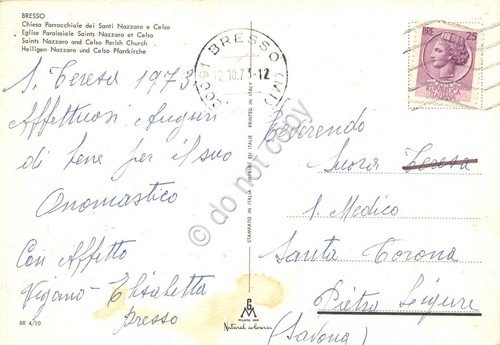 BRESSO
Chiesa Parrocchiale dei Santi Nazzaro e Celso
Eglise Paroissiale Saints Nazzaro et Celso
Saints Nazzaro and Celso Parish Church
Heiligen Nazzaro und Celso Pfarrkirche
S. Teresa 1973
Affettuosi Auguri
di bene per il suo
Onomastico
Con Affetto
Viganò Elisabetta
Bresso
BR 4/10
PRINTED IN ITALY
STAMPATO IN ITALIA
do not copy
MILANO
Natural colorvisa
20091 BRESSO (MI)
12.10.73-12
LIRE 25
Reverendo
Suora Teresa
S. Medico
Santa Corona
Pietra Ligure
(Savona)